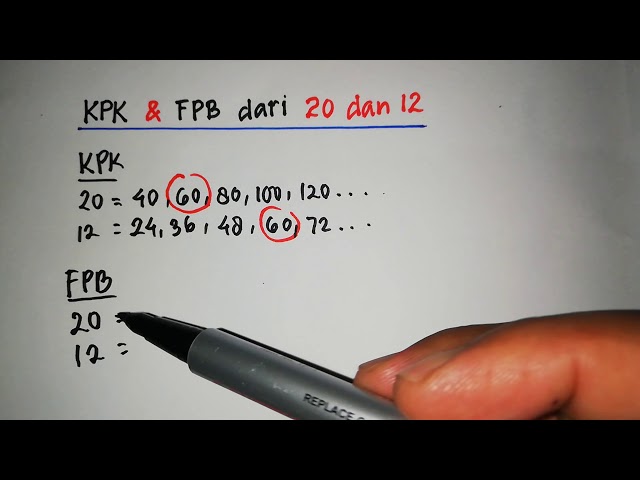 KPK & FPB dari 20 dan 12
KPK
20 = 40, 60, 80, 100, 120 ....
12 = 24, 36, 48, 60, 72 ...
FPB
20 =
12 =
REPLACE